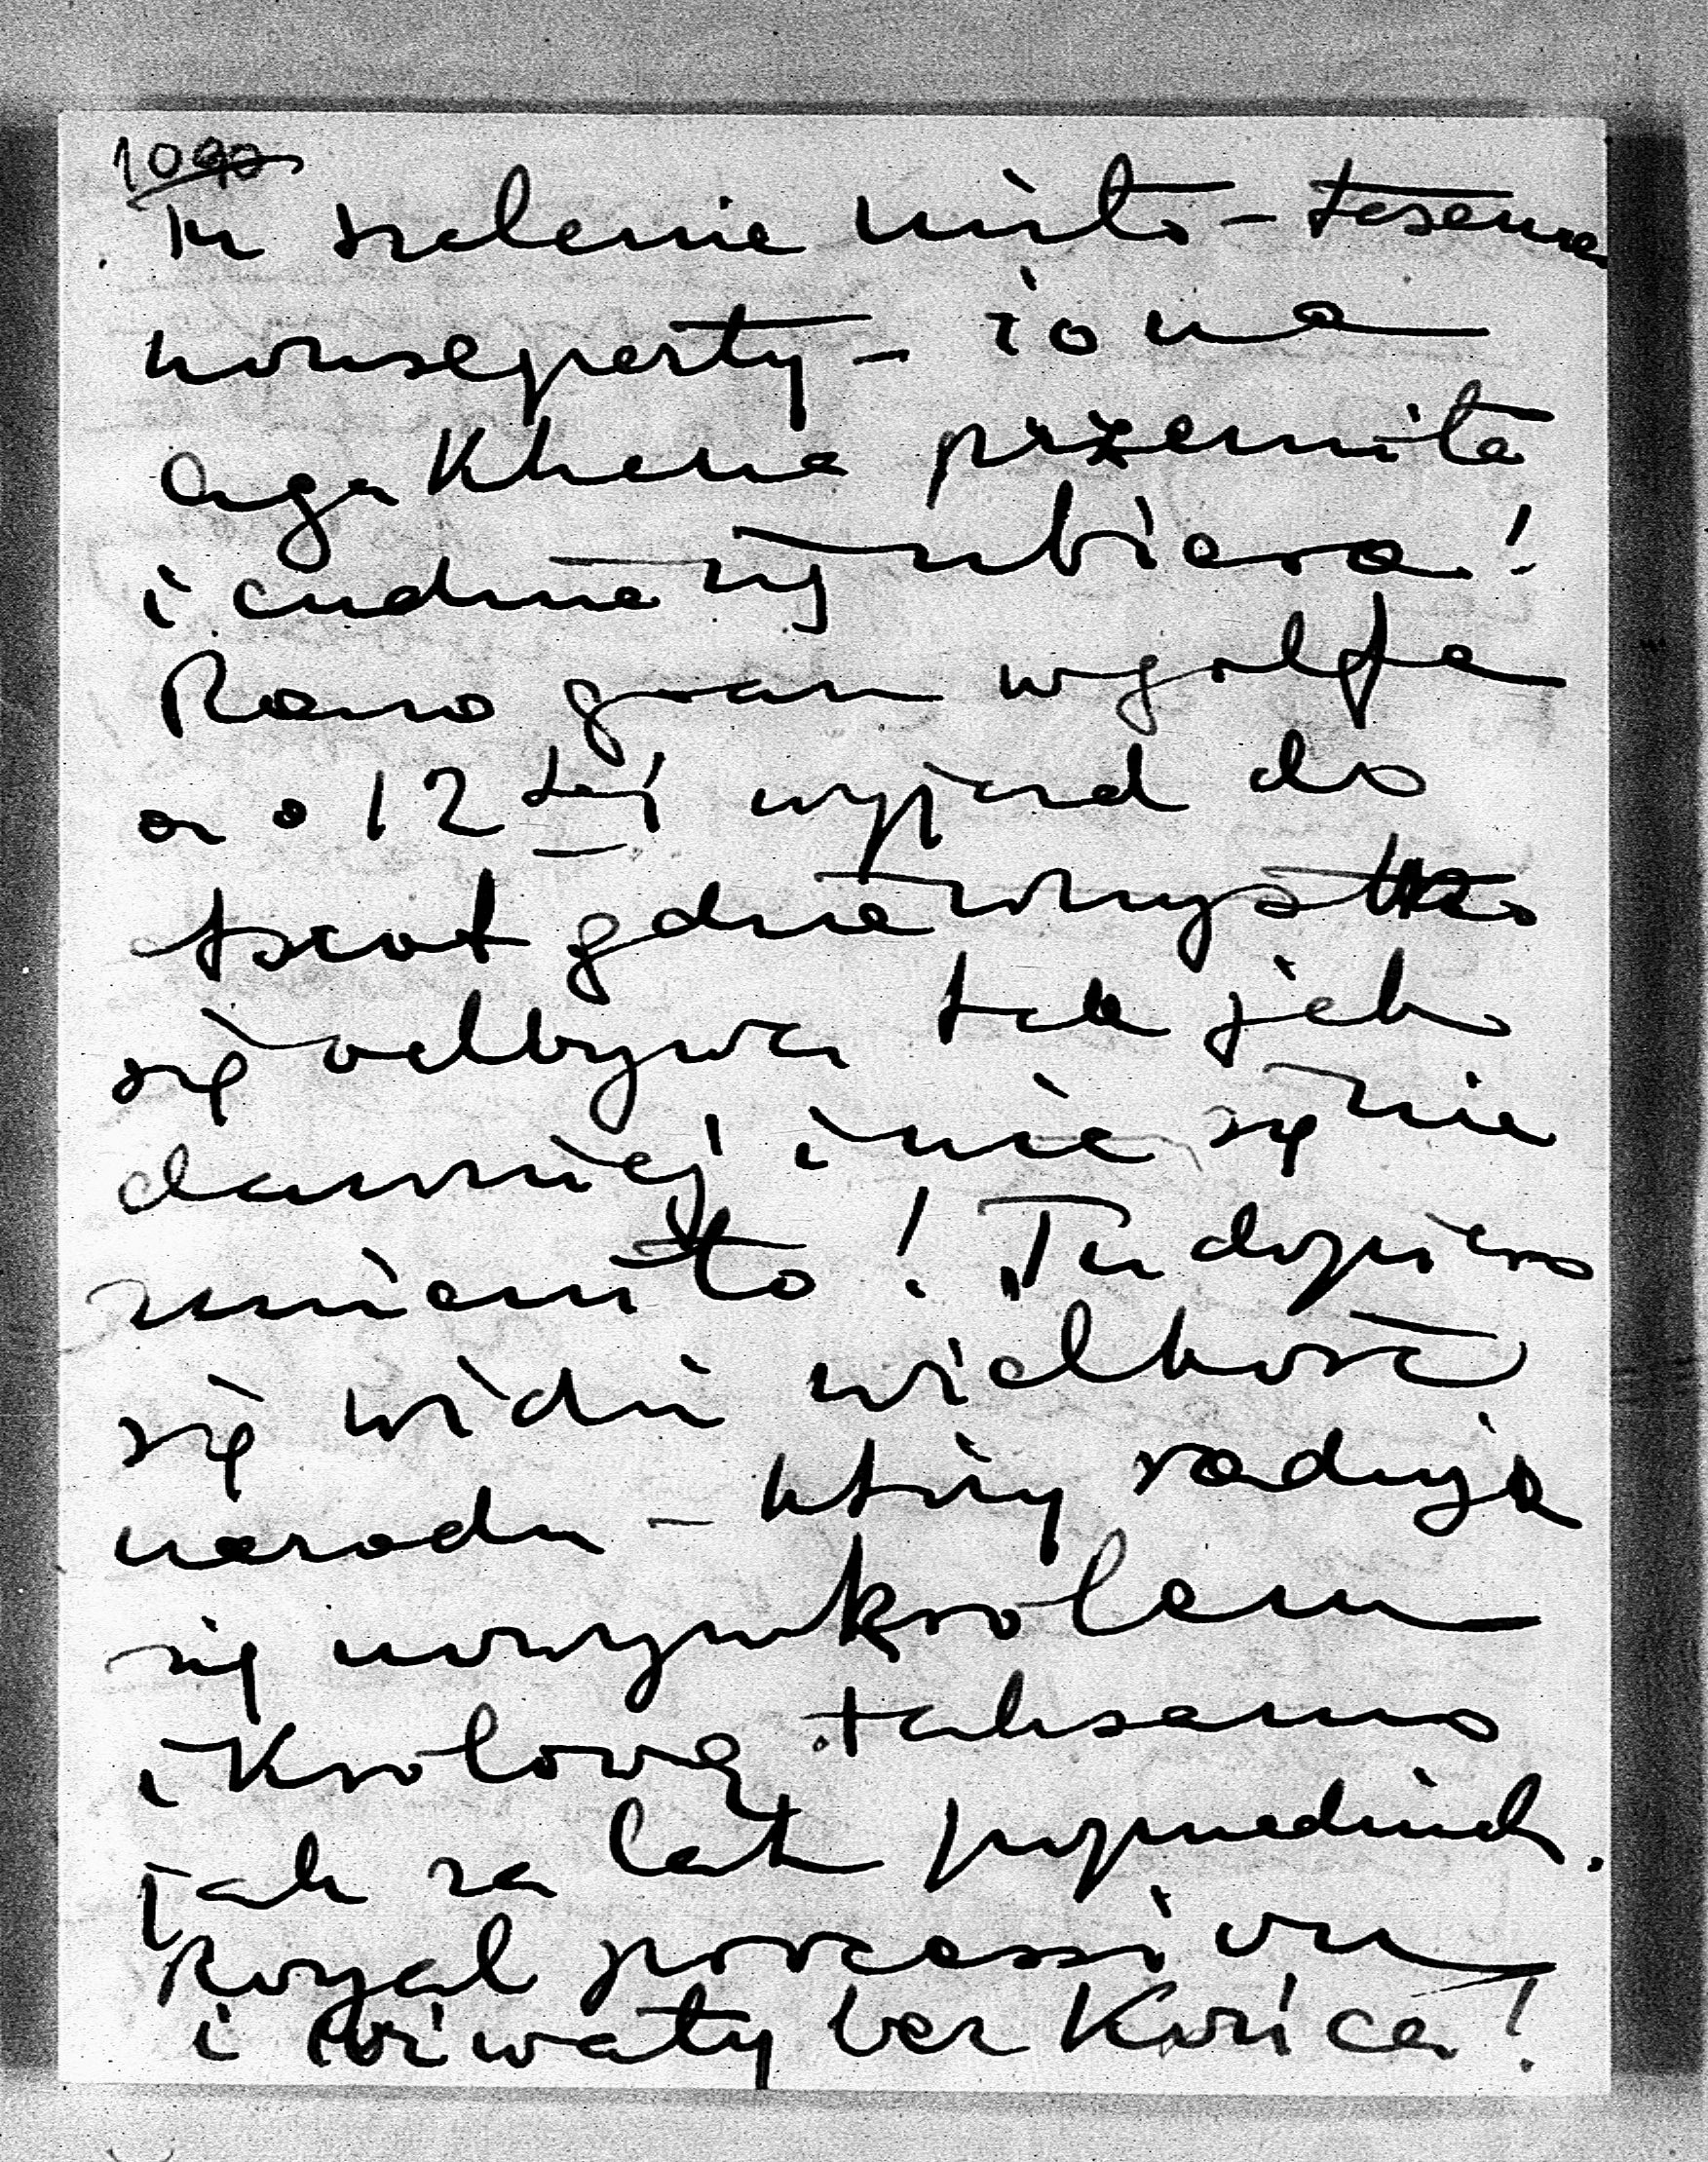 1090
Tu szalenie miło – ta sama
houseparty – żona
Aga Khana przemiła
i cudnie się ubiera!
Rano gram w golfa
a o 12 tej wyjazd do
Ascot gdzie wszystko
się odbywa tak jak
dawniej i nic się nie
zmieniło! Tu dopiero
się widzi wielkość
narodu – który raduje
się nowym krolem
i Krolową taksamo
jak za lat poprzednich.
Royal procession
i wiwaty bez Końca!